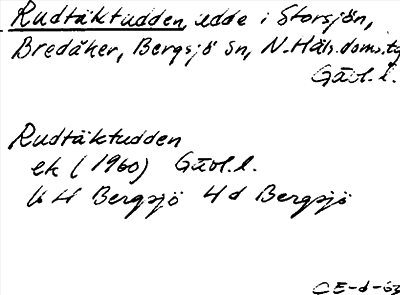 Rudtäktudden, udde i Storsjön,
Bredåker, Bergsjö sn, N. Häls. doms. tg
Gävl. l.
Rudtäktudden
ek (1960) Gävl. l.
16 H Bergsjö 4 d Bergsjö
CE-d-63